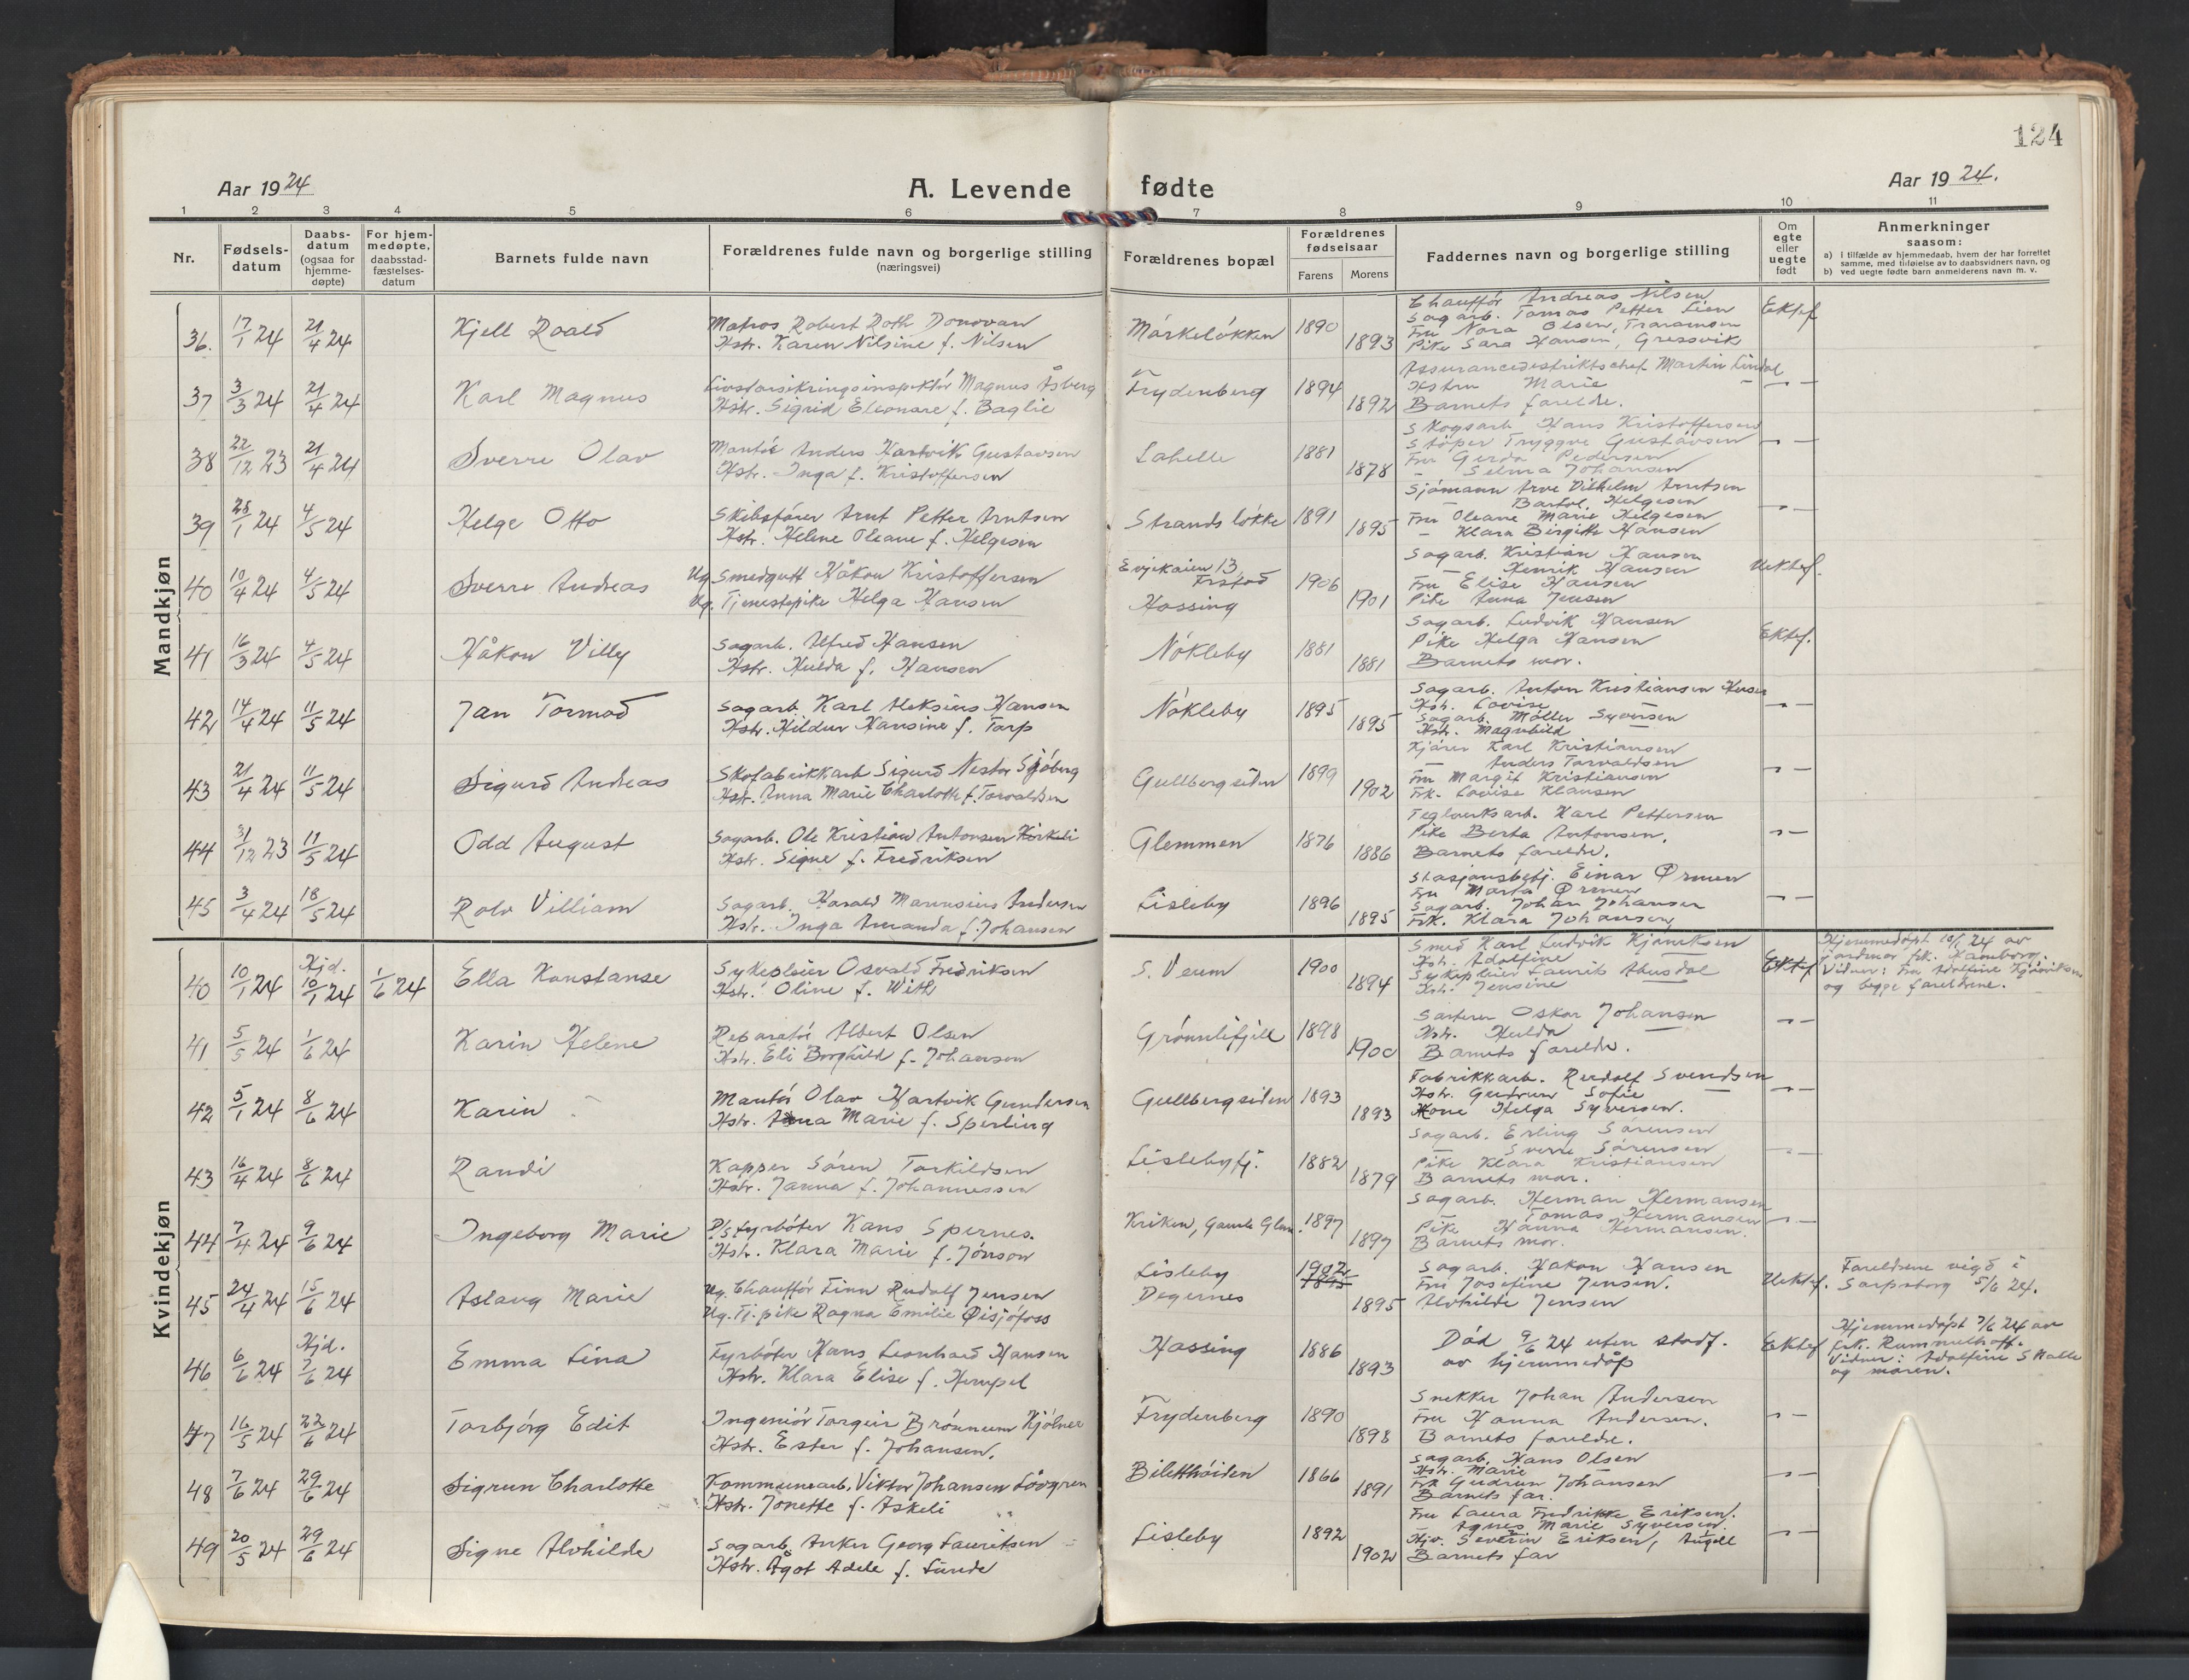 124
Aar 1924
A. Levende fødte
Aar 1924.
1 2 3 4 5 6 7 8 9 10 11
Nr.
Fødsels-
datum
Daabs-
datum
(ogsaa for
hjemme-
døpte)
For hjem-
medøpte,
daabsstad-
fæstelses-
datum
Barnets fulde navn
Forældrenes fulde navn og borgerlige stilling
(næringsvei)
Forældrenes bopæl
Forældrenes
fødselsaar
Farens Morens
Faddernes navn og borgerlige stilling
Om
egte
eller
uegte
født
Anmerkninger
saasom:
a) i tilfælde av hjemmedaab, hvem der har forrettet
samme, med tilføielse av to daabsvidners navn, og
b) ved uegte fødte barn anmelderens navn m. v.
Mandkjøn
36. 17/1 24 21/4 24 Kjell Roald
Matros Robert Roth Donovan
Hstr. Karen Nilsine f. Nilsen
Mørkeløkken 1890 1893
Chauffør Andreas Nilsen
Sagarb. Tomas Petter Lien
Fru Nora Olsen,
Pike Sara Hansen, Gressvik
Ektef
37 3/3 24 21/4 24 Karl Magnus
Livsforsikringsinspektør Magnus Åsberg
Hstr. Sigrid Eleonare f. Baglie
Frydenberg 1894 1892
Assurancedistriktschef Martin Lindal
Hstru Marie —
Barnets foreldre.
— " —
38 22/12 23 21/4 24 Sverre Olav
Montør Anders Hartvik Gustavsen
Hstr. Inga f. Kristoffersen
Labelle 1881 1878
Skogsarb Hans Kristoffersen
Støper Tryggve Gustavsen
Fru Gerda Pedersen
— Selma Johansen
— " —
39 28/1 24 4/5 24 Helge Otto
Skibsfører Arnt Petter Arntsen
Hstr. Helene Oleane f. Helgesen
Strandsløkke 1891 1895
Sjømann Arve Vilhelm Arntsen
— Bartol. Helgesen
Fru Oleane Marie Helgesen
— Klara Birgitte Hansen
— " —
40 10/4 24 4/5 24 Sverre Andreas
Ug. Smedgutt Håkon Kristoffersen
Ug. Tjenestepike Helga Hansen
Evjekaien 13, Frstad
Hassing
1906 1901
Sagarb. Kristian Hansen
— Henrik Hansen
Fru Elise Hansen
Pike Anna Jensen
Uektef.
41 16/3 24 4/5 24 Håkon Villy
Sagarb. Alfred Hansen
Hstr. Hulda f. Hansen
Nøkleby 1881 1881
Sagarb. Ludvik Hansen
Pike Helga Hansen
Barnets mor.
Ektef.
42 14/4 24 11/5 24 Jan Tormod
Sagarb. Karl Aleksius Hansen
Hstr. Hildur Hansine f. Torp
Nøkleby 1895 1895
Sagarb. Anton Kristiansen
Hstr. Lovise —
Sagarb. Møller Syversen
Hstr. Magnhild —
— " —
43 21/4 24 11/5 24 Sigurd Andreas
Skofabrikkarb Sigurd Nestor Sjøberg
Hstr. Anna Marie Charlotte f. Torvaldsen
Gullbergseiden 1899 1902
Kjører Karl Kristiansen
— Anders Torvaldsen
Fru Margit Kristiansen
Frk. Lovise Klausen
— " —
44 31/12 23 11/5 24 Odd August
Sagarb. Ole Kristian Antonsen Kirkeli
Hstr. Signe f. Fredriksen
Glemmen 1876 1886
Teglverksarb. Karl Pettersen
Pike Berta Antonsen.
Barnets foreldre.
— " —
45 3/4 24 18/5 24 Rolv Villiam
Sagarb. Harald Marensius Andersen
Hstr. Inga Amanda f. Johansen
Lisleby 1896 1895
Stasjonsbetj. Einar Ørmen
Fru Marta Ørmen
Sagarb. Johan Johansen
Frk. Klara Johansen
— " —
Kvindekjøn
40 10/1 24 Hjd. 10/1 24 1/6 24 Ella Konstanse
Sykepleier Osvald Fredriksen
Hstr. Oline f. With
S. Veum 1900 1894
Smed Karl Ludvik Kjøniksen
Hstr. Adolfine —
Sykepleier Laurits Abusdal
Hstr. Jensine —
Ektef
Hjemmedøpt 10/1 24 av
jordmor frk. Hamborg.
Vidner: Fru Adolfine Kjøniksen
og begge foreldrene.
41 5/5 24 1/6 24 Karin Helene
Reparatør Albert Olsen
Hstr. Eli Borghild f. Johansen
Grønnlifjell 1898 1900
Sorterer Oskar Johansen
Hstr. Hulda —
Barnets foreldre.
— " —
42 5/1 24 8/6 24 Karin
Montør Olav Hartvik Gundersen
Hstr. Anna Marie f. Sperling
Gullbergseiden 1893 1893
Fabrikkarb. Rudolf Svendsen
Hstr. Gudrun Sofie —
Kone Helga Syversen.
— " —
43 16/4 24 8/6 24 Randi
Kapper Søren Torkildsen
Hstr. Janna f. Johannessen
Lislebyfj. 1882 1879
Sagarb. Erling Sørensen
— Sverre Sørensen
Pike Klara Kristiansen
Barnets mor.
— " —
44 7/4 24 9/6 24 Ingeborg Marie
D/S fyrbøter Hans Spernes.
Hstr. Klara Marie f. Jonson
Kriken, Gamle Glem. 1897 1897
Sagarb. Herman Hermansen
— Tomas Hermansen
Pike Hanna Hermansen.
Barnets mor.
— " —
45 24/4 24 15/6 24 Aslaug Marie
Ug. Chauffør Finn Rudolf Jensen
Ug. Tj. pike Ragna Emilie Øisjøfoss
Lisleby
Degernes
1902 1895 1895
Sagarb. Hakon Hansen
Fru Josefine Jensen.
Alvhilde Jensen
Uektef.
Foreldrene vigd i
Sarpsborg 5/6 24.
46 6/6 24 Hjd. 7/6 24 Emma Lina
Fyrbøter Hans Leonhard Hansen
Hstr. Klara Elise f. Hempel
Hassing 1886 1893
Død 9/6 24 uten stadf.
av hjemmedåp
Ektef
Hjemmedøpt 7/6 24 av
frk. Rummelhoff.
Vidner: Adolfine Skolle
og moren.
47 16/5 24 22/6 24 Torbjørg Edit
Ingeniør Torgeir Brønnum Kjølner
Hstr. Ester f. Johansen.
Frydenberg 1890 1898
Snekker Johan Andersen
Fru Hanna Andersen.
Barnets foreldre.
— " —
48 7/6 24 29/6 24 Sigrun Charlotte
Kommunearb. Viktor Johansen Løvgren
Hstr. Jonette f. Askeli
Biletthøiden 1866 1891
Sagarb. Hans Olsen
Hstr. Marie —
Frk Gudrun Johansen
Barnets far.
— " —
49 20/5 24 29/6 24 Signe Alvhilde
Sagarb. Anker Georg Lauritsen
Hstr. Ågot Adele f. Lunde
Lisleby 1892 1902
Fru Laura Fredrikke Eriksen.
— Agnes Marie Syversen.
Hjv. Severin Eriksen,
Barnets far
— " —